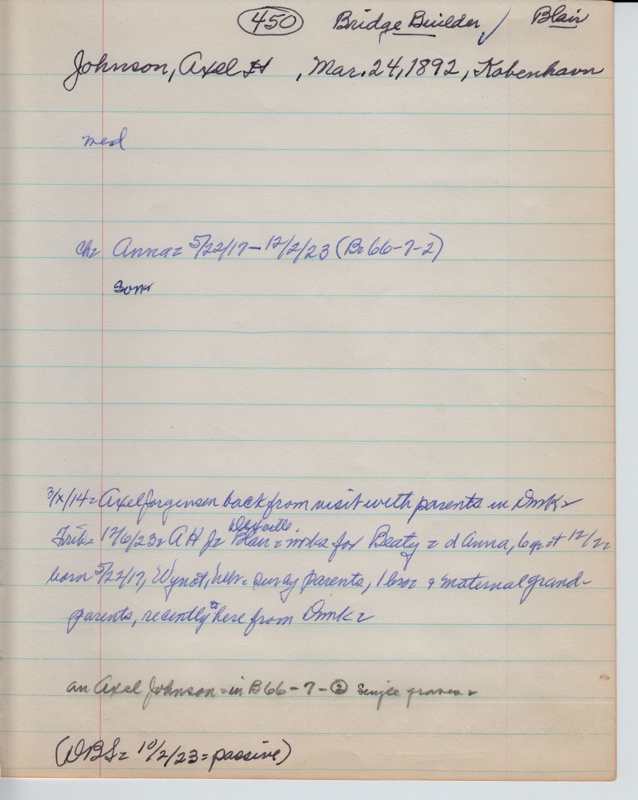 450 Bridge Builder ✓ Blair
Johnson, Axel H , Mar. 24, 1892, Kobenhavn
med
ch= Anna= 5/22/17 – 12/2/23 (B 66-7-2)
Son=
3/X/14= Axel Jorgensen back from visit with parents in Dmk=
Trib= 12/6/23= A H J= Blair= works for Beaty= d Anna, 6 yr + 12/2
born 5/22/17, Wynot, Nebr= surv by parents, 1 bro= & maternal grand-
parents, recently here from Dmk=
an Axel Johnson= in B66-7-2 single graves=
(DBS= 10/2/23= passive)